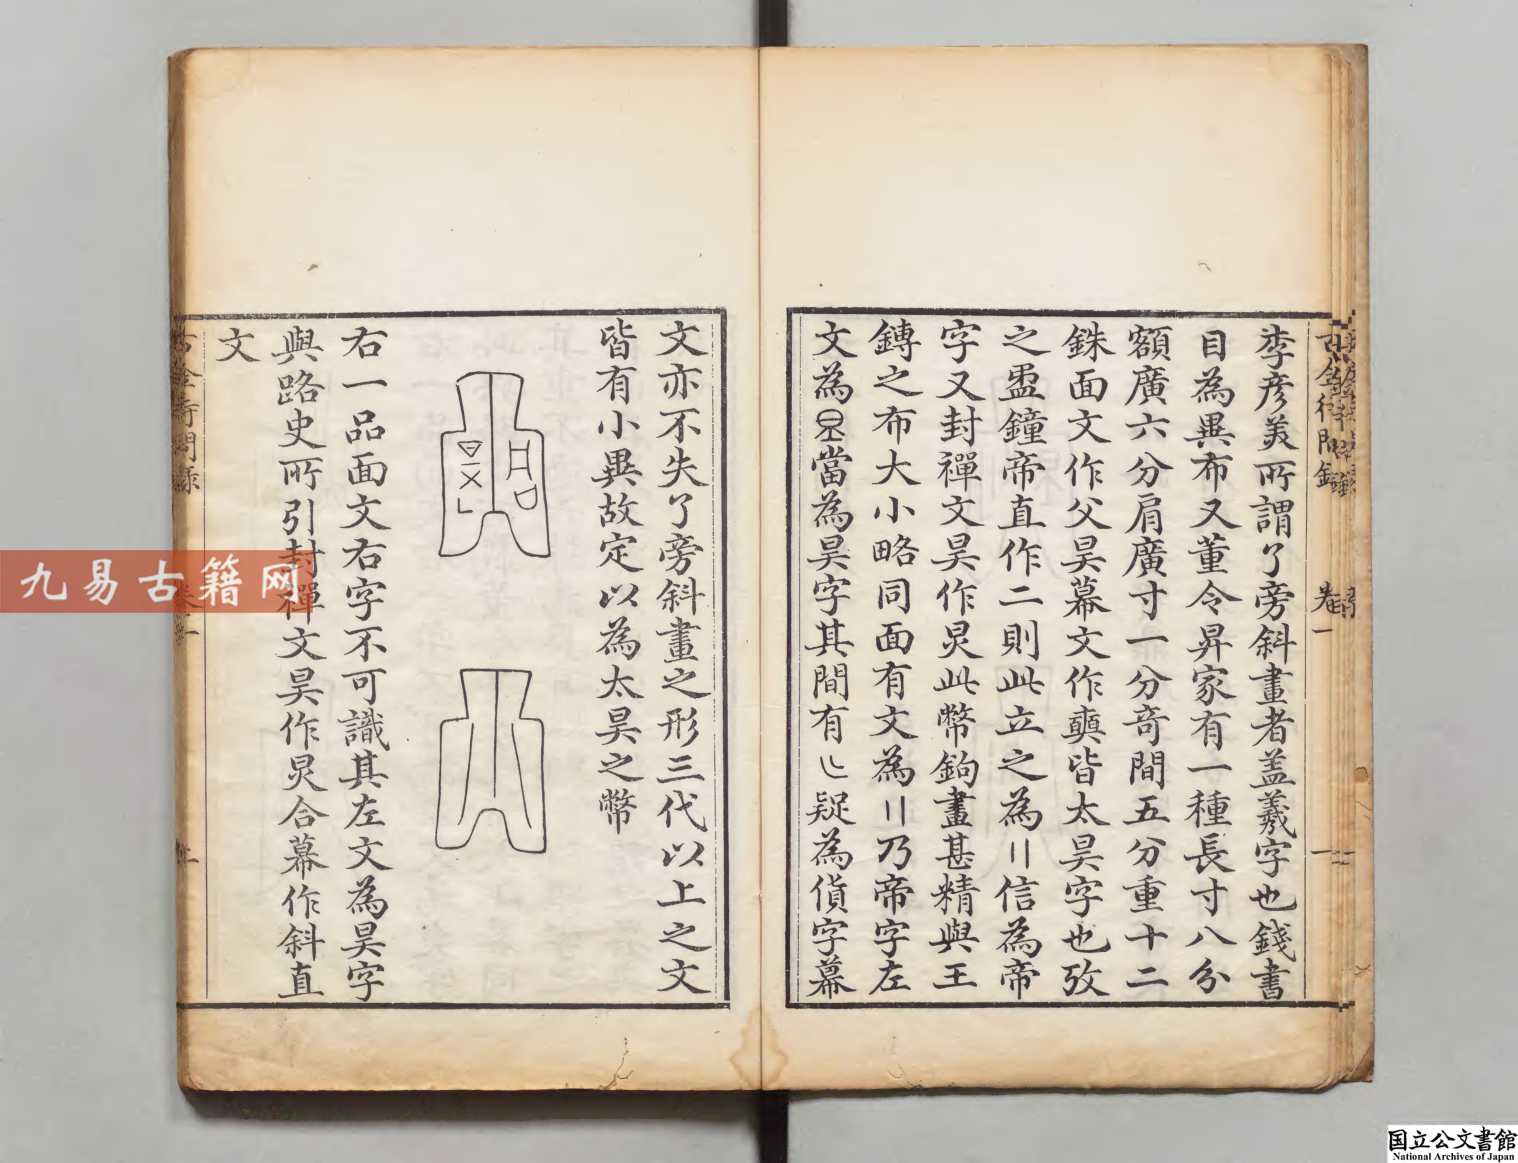 李彦美所謂了旁斜畫者盖羲字也錢書
目為異布又董令昇家有一種長寸八分
額廣六分肩廣寸一分奇間五分重十二
銖面文作父昊幕文作奭皆太昊字也攷
之盄鐘帝直作二則此立之為〢信為帝
字又封禪文昊作炅此幣鉤畫甚精與王
鏄之布大小略同面有文為〢乃帝字左
文為當為昊字其間有疑為貨字幕
文亦不失了旁斜畫之形三代以上之文
皆有小異故定以為太昊之幣
右一品面文右字不可識其左文為昊字
與路史所引封禪文昊作炅合幕作斜直
文
古金待問錄
卷一
九易古籍网
国立公文書館
National Archives of Japan